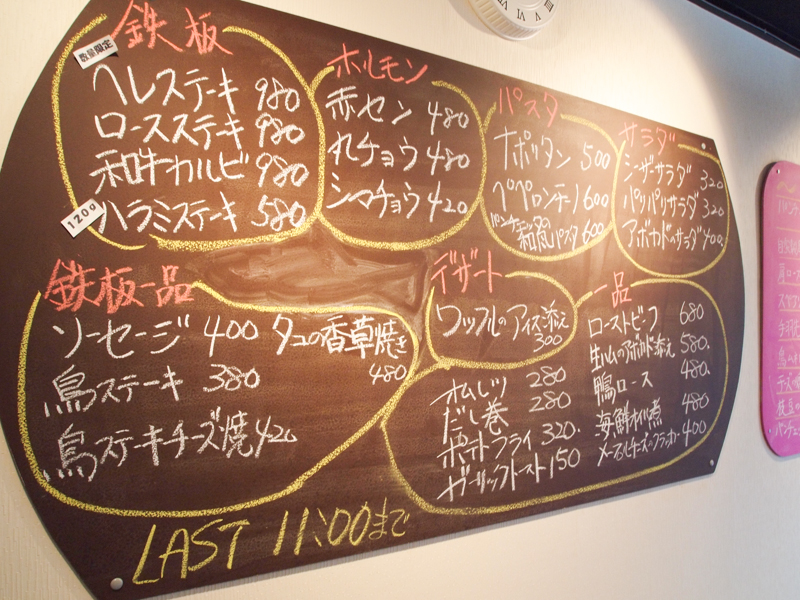 鉄板
数量限定
ヘレステーキ 980
ロースステーキ 980
和牛カルビ 980
120g
ハラミステーキ 580
ホルモン
赤セン 480
丸チョウ 480
シマチョウ 420
パスタ
ナポリタン 500
ペペロンチーノ 600
パンチェッタの
和風パスタ 600
サラダ
シーザーサラダ 320
パリパリサラダ 320
アボカドのサラダ 400
鉄板一品
ソーセージ 400
鳥ステーキ 380
鳥ステーキチーズ焼 420
タコの香草焼き
480
デザート
ワッフルのアイス添え
300
一品
オムレツ 280
だし巻 280
ポテトフライ 320
ガーリックトースト 150
ローストビーフ 680
生ハムのアボカド添え 580
鴨ロース 480
海鮮オイル煮 480
メープルチーズのクラッカー 400
LAST 11:00まで